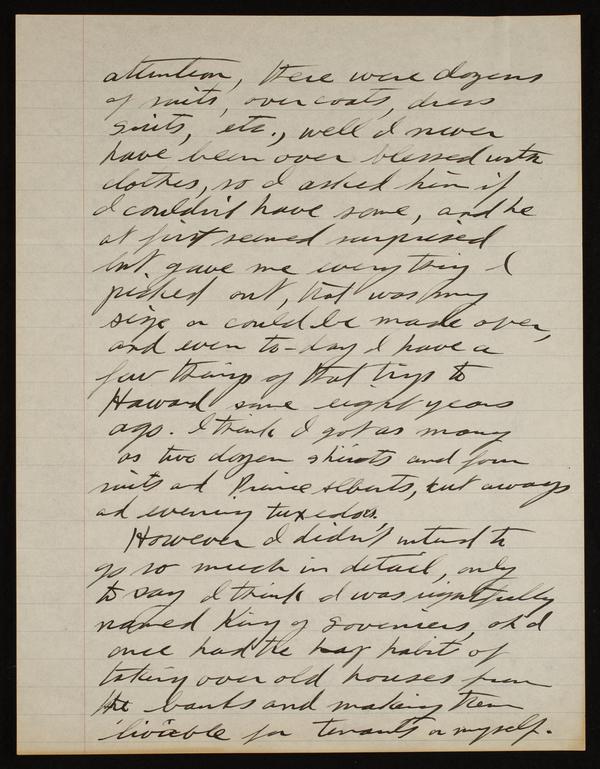 attention, there were dozens
of suits, over coats, dress
suits, etc., well I never
have been over blessed with
clothes, so I asked him if
I couldn't have some, and he
at first seemed surprised
but gave me everything I
picked out, that was my
size or could be made over,
and even to-day I have a
few things of that trip to
Howard some eight years
ago. I think I got as many
as two dozen shirts and four
suits ad Prince Alberts, cut aways
ad evening tuxedos.
However I didn't intend to
go so much in detail, only
to say I think I was rightfully
named King of Souveniers, ohd
once had the hap habit of
taking over old houses from
the banks and making them
livable for tenants or myself.